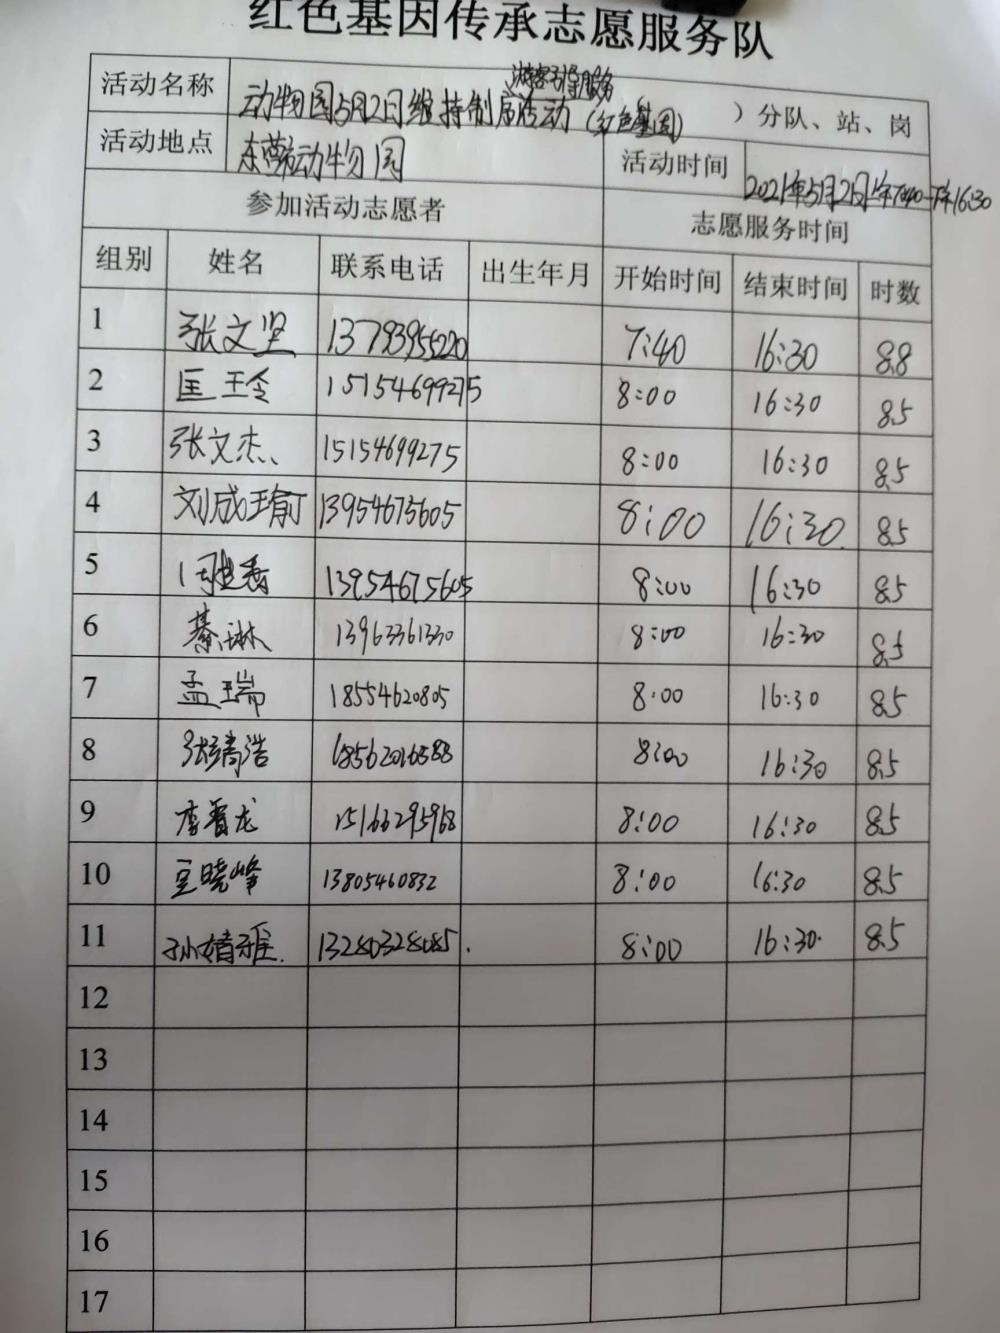 红色基因传承志愿服务队
活动名称 动物园5月2日维持制序活动 游客引导服务 (红色基因) )分队、站、岗
活动地点 东营动物园 活动时间 2021年5月2日上午7:40-下午16:30
参加活动志愿者 志愿服务时间
组别 姓名 联系电话 出生年月 开始时间 结束时间 时数
1 张文坚 13793955220 7:40 16:30 8.8
2 匡玲 15154699275 8:00 16:30 8.5
3 张文杰 15154699275 8:00 16:30 8.5
4 刘成瑜 13954675605 8:00 16:30 8.5
5 13954675605 8:00 16:30 8.5
6 綦琳 13963361330 8:00 16:30 8.5
7 孟瑞 18554620805 8:00 16:30 8.5
8 张靖浩 8:00 16:30 8.5
9 李晋龙 15166295968 8:00 16:30 8.5
10 晓峰 13805460832 8:00 16:30 8.5
11 孙婧雅. 13280328085. 8:00 16:30. 8.5
12
13
14
15
16
17